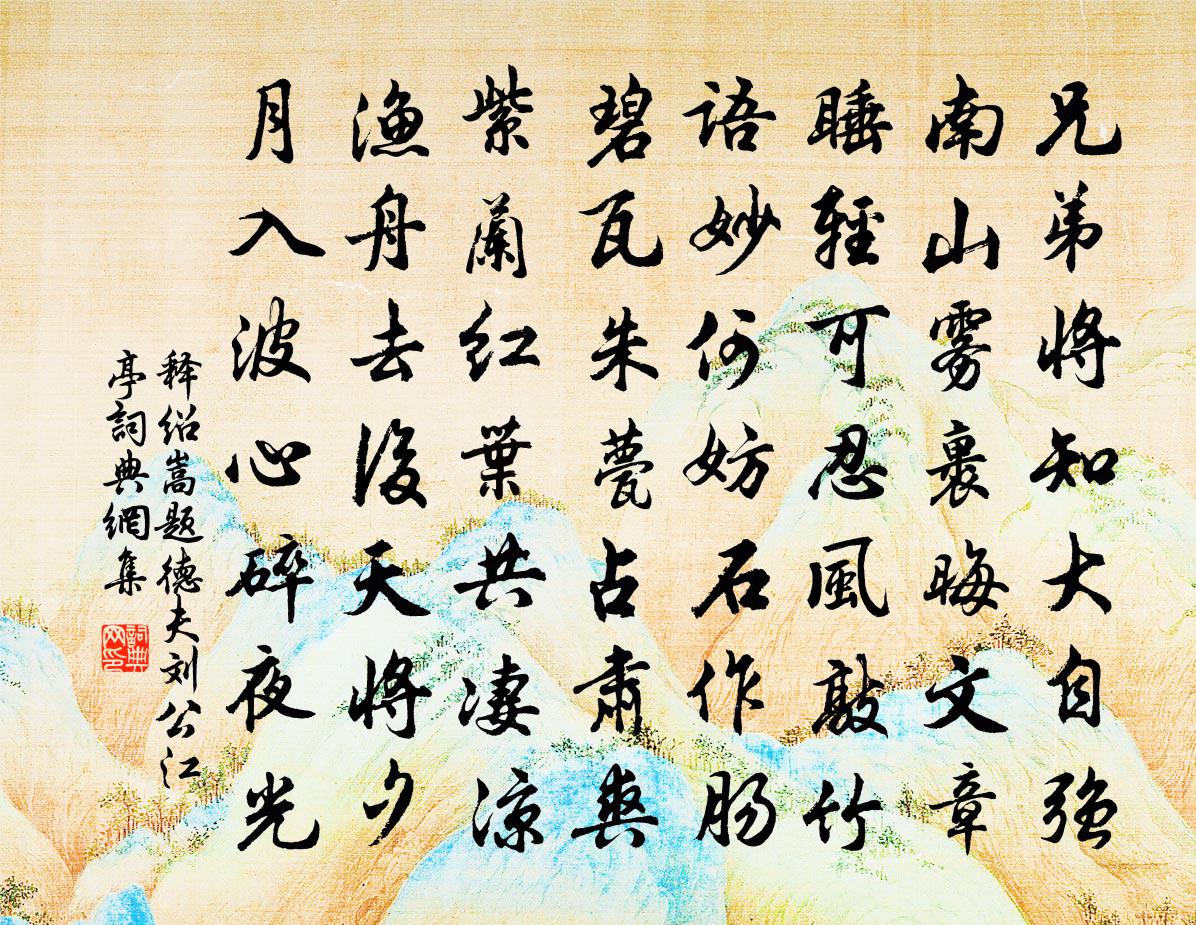 兄弟將知大自強
南山雾裹晦文章
睡輕可忍風敲竹
语妙何妨石作肠
碧瓦朱甍占肃爽
紫蘭红葉共凄凉
渔舟去後天將夕
月入波心碎夜光
释绍嵩题德夫刘公江
亭詞典網集
詞典
网印